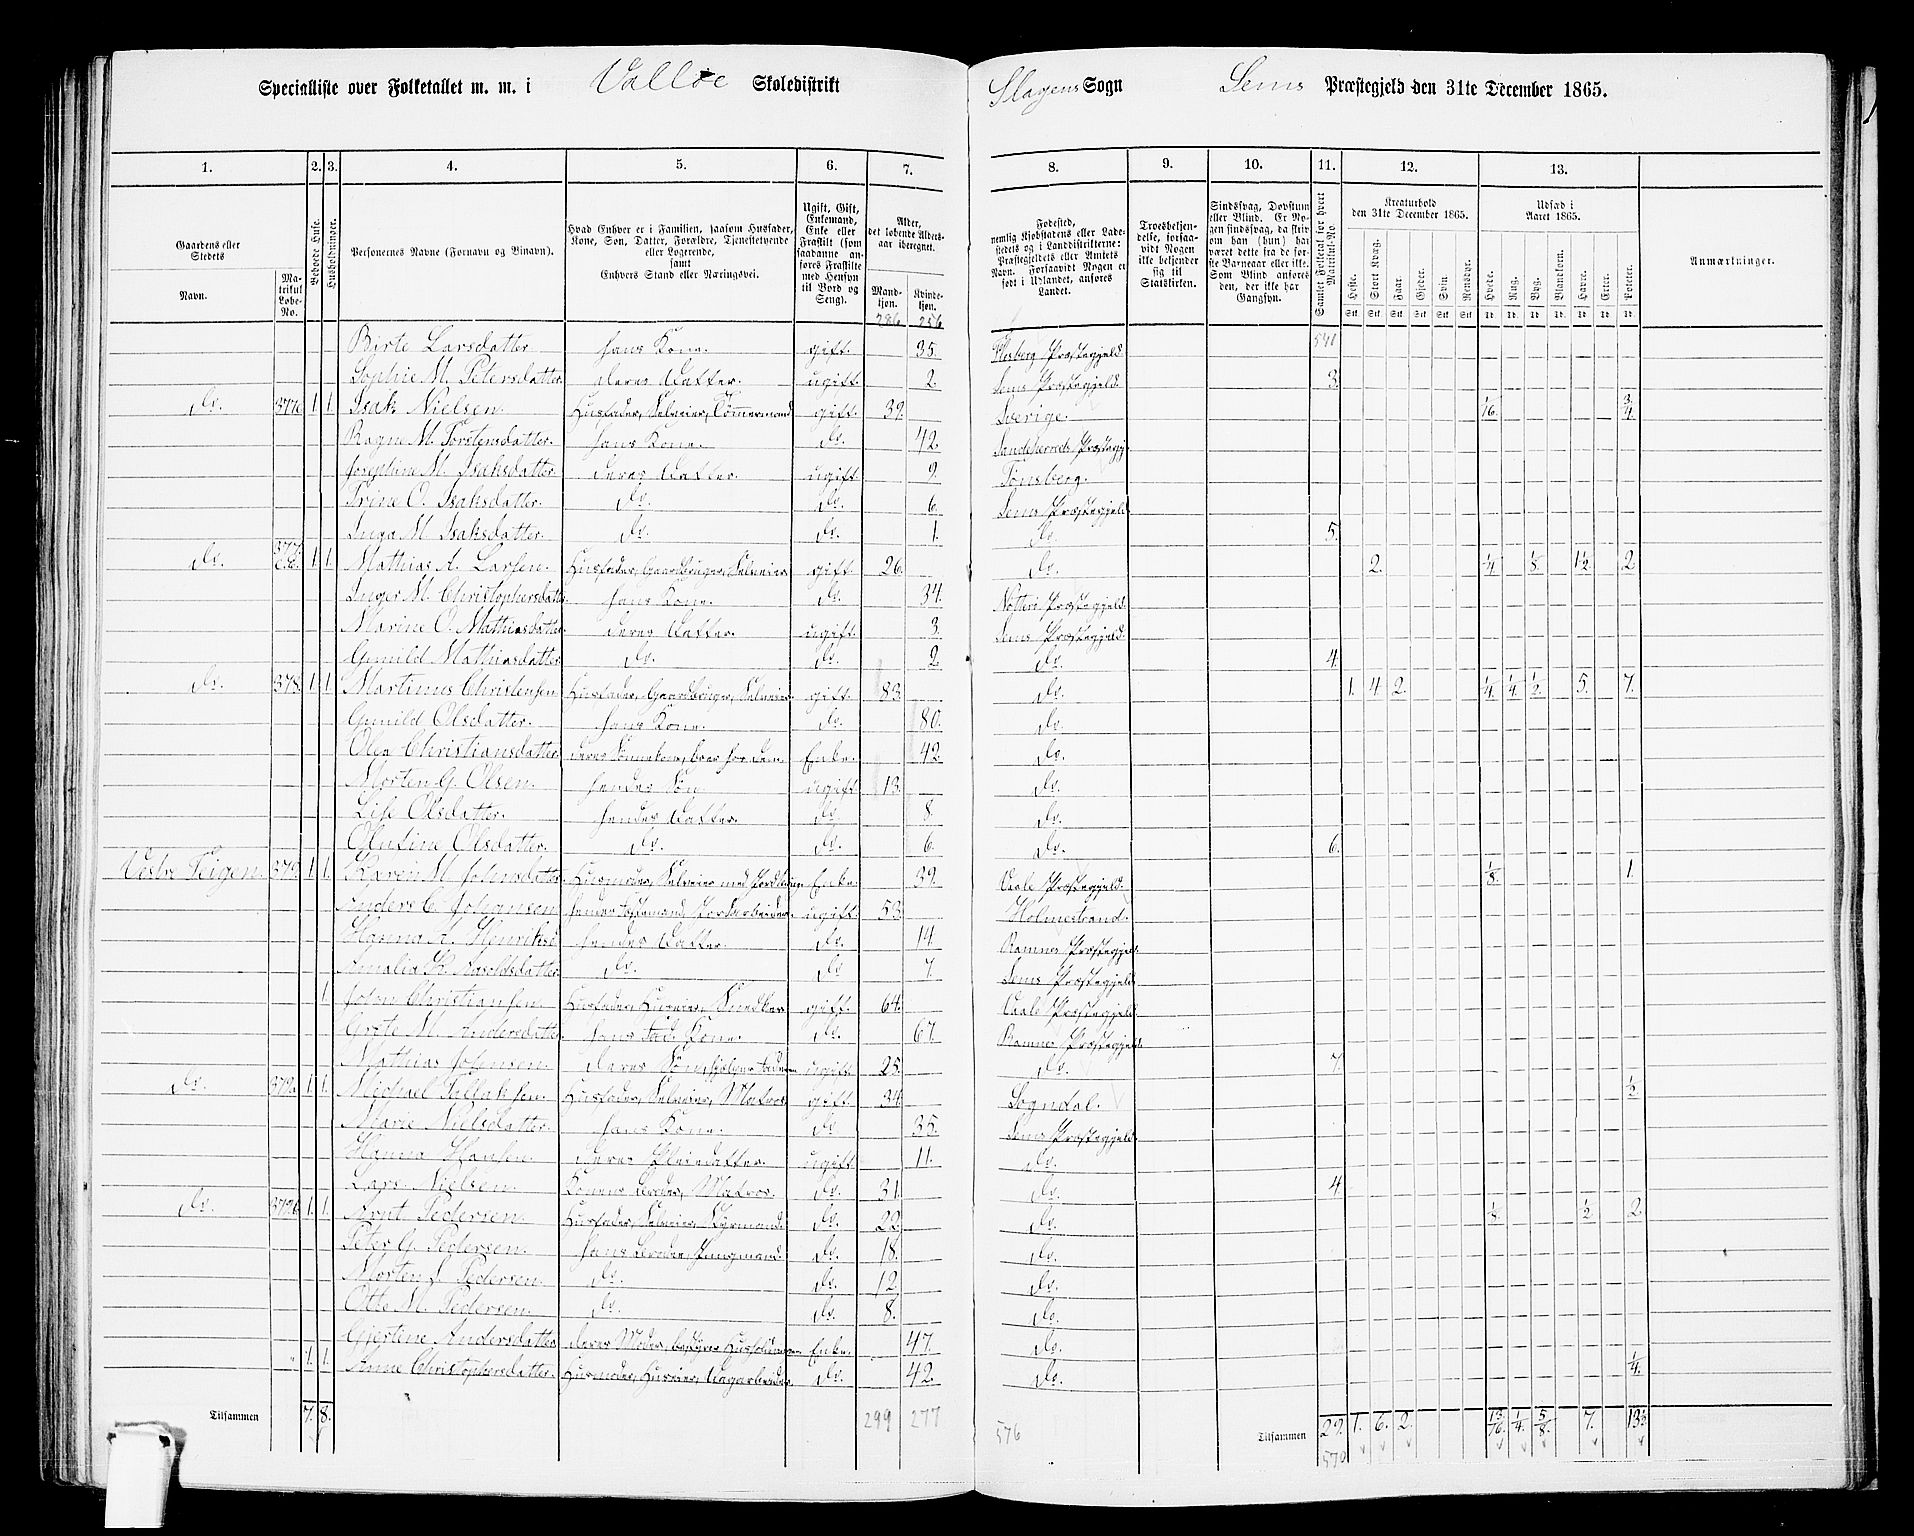 Specialliste over Folketallet m. m. i Valløe Skoledistrikt Slagens Sogn Sems Præstegjeld den 31te December 1865.
1. 2. 3. 4. 5. 6. 7. 8. 9. 10. 11. 12. 13.
Gaardens eller Stedets Navn. Matrikul Løbe-No. Beboede Huse. Husholdninger. Personernes Navne (Fornavn og Binavn). Hvad Enhver er i Familien, saasom Husfader, Kone, Søn, Datter, Forældre, Tjenestetyende eller Logerende, samt Enhvers Stand eller Næringsvei. Ugift, Gift, Enkemand, Enke eller Fraskilt (som saadanne anføres Fraskilte med Hensyn til Bord og Seng). Alder, det løbende Aldersaar iberegnet. Mandkjøn. Kvindekjøn. Fødested, nemlig Kjøbstadens eller Ladestedets og i Landdistrikterne: Præstegjeldets eller Amtets Navn. Forsaavidt Nogen er født i Udlandet, anføres Landet. Troesbekjendelse, forsaavidt Nogen ikke bekjender sig til Statskirken. Sindssvag, Døvstum eller Blind. Er Nogen sindssvag, da skrives om han (hun) har været dette fra de første Barneaar eller ikke. Som Blind anføres den, der ikke har Gangsyn. Samlet Folketal for hvert Matrikul-No. Kreaturhold den 31te December 1865. Heste. Stort Kvæg. Faar. Gjeder. Svin. Rensdyr. Udsæd i Aaret 1865. Hvede. Rug. Byg. Blandkorn. Havre. Erter. Poteter. Anmærkninger.
286 256
Birte Larsdatter hans Kone. gift. 35. Flesberg Præstegjeld 541
Sophie M. Petersdatter. deres Datter. ugift. 2. Sems Præstegjeld 3.
do. 377b 1. 1. Isak Nielsen. Husfader, Selveier, Tømermand gift. 39. Sverige. 1/16 3/4
Ragne M. Torstensdatter. hans Kone. do. 42. Sandeherreds Præstegj.
Josephine M. Isaksdatter. deres Datter. ugift. 9. Tønsberg.
Trine O. Isaksdatter. do. do. 6. Sems Præstegjeld
Inga M. Isaksdatter. do. do. 1. do. 5.
do. 1. 1. Mathias A. Larsen. Husfader, Gaardbruger, Selveier gift. 26. do. 2. 1/4 1/8 1 1/2 2
Inger M. Christophersdatter hans Kone. do. 34. Nøtterø Præstegjeld.
Marine O. Mathiasdatter. deres Datter. ugift. 3. Sems Præstegjeld.
Gunild Mathiasdatter do. do. 2. do. 4.
do. 378. 1. 1. Martinus Christensen Husfader, Gaardbruger, Selveier. gift. 83. do. 1. 4 2. 1/4 1/4 1/2 5. 7.
Gunild Olsdatter. hans Kone. do. 80. do.
Olea Christiansdatter. deres Sønnekone, boer hos dem. Enke. 42. do.
Morten G. Olsen. hendes Søn. ugift. 13. do.
Lise Olsdatter. hendes Datter. do. 8. do.
Olufine Olsdatter. do. do. 6. do. 6.
Vestre Teigen. 1. 1. Karen M. Johnsdatter. Husmoder, Selveier med Jordbrug Enke. 39. Vaale Præstegjeld. 1/8 1.
Anders C. Johansen. ugift. 53. Holmestrand.
Hanna A. Henriksd. hendes Datter. do. 14. Ramnes Præstegjeld.
Amalia K. do. do. 7. Sems Præstegjeld
1 John Christiansen. Husfader, Huseier, Snedker gift. 64. Vaale Præstegjeld.
Grete M. Andersdatter. hans Kone. do. 67. Ramnes Præstegjeld
Mathias Johnsen. deres Søn, hjelper Faderen ugift 25. do. 7.
do. 379a 1. 1. Michael Tallaksen. Husfader, Selveier, Matros gift. 34. Sogndal. 1/2
Marie Nielsdatter. hans Kone. do. 35. Sems Præstegjeld.
Hanna Hansen. deres Pleiedatter. ugift 11. do.
Lars Nielsen. Konens Broder, Matros. do. 31. do. 4.
do. 379b 1. 1. Arnt Pedersen. Husfader, Selveier, Styrmand. do. 22. do. 1/8 1/2 2.
Peter G. Pedersen. hans Broder, Jungmand. do. 18. do.
Morten J. Pedersen. do. do. 12. do.
Otto M. Pedersen. do. do. 8. do.
Gjertine Andersdatter deres Moder, bestyrer Husholdningen Enke. 47. do.
" 1. 1. Anne Christophersdatter. Husmoder, Huseier, Dagarbeider. do. 42. do. 1/4
Tilsammen 7. 8. 299 277 576 Tilsammen 29. 1. 6. 2. 13/16 1/4 5/8 7.
570